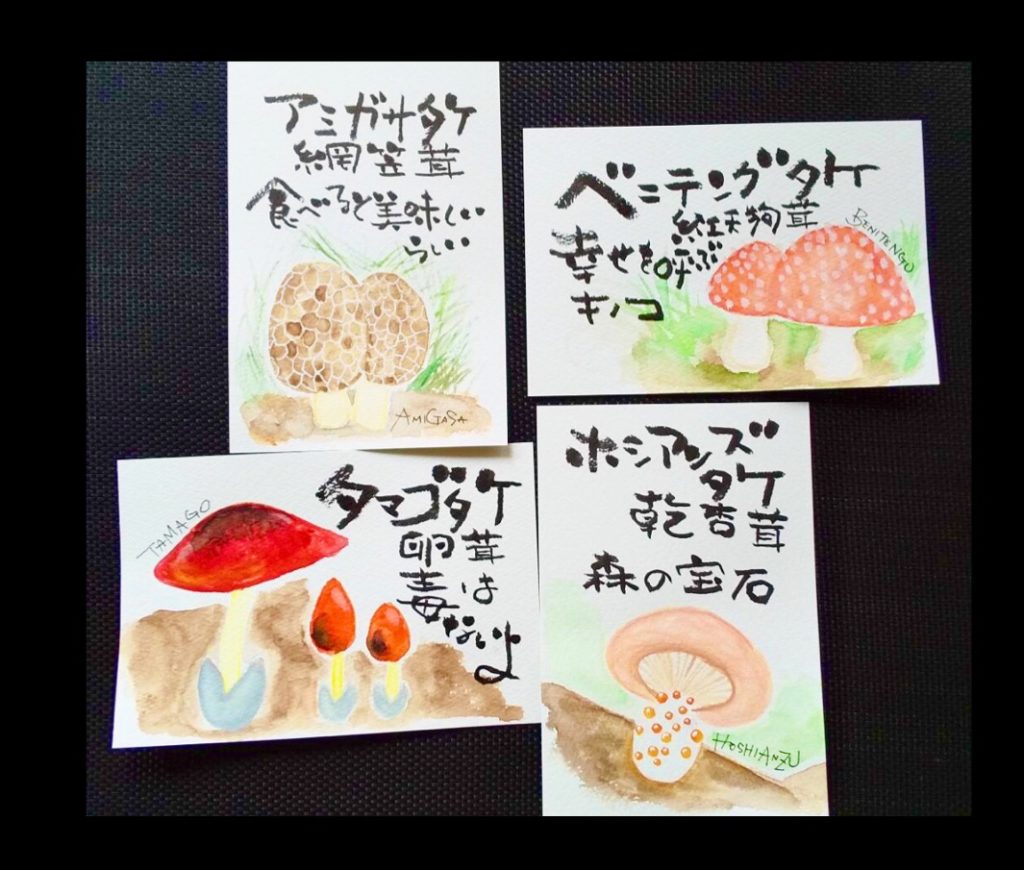 アミガサタケ
網笠茸
食べると美味しい
らしい
AMIGASA
ベニテングタケ
紅天狗茸
BENITENGU
幸せを呼ぶ
キノコ
タマゴタケ
TAMAGO
卵茸
毒は
ないよ
ホシアンズ
タケ
乾杏茸
森の宝石
HOSHIANZU